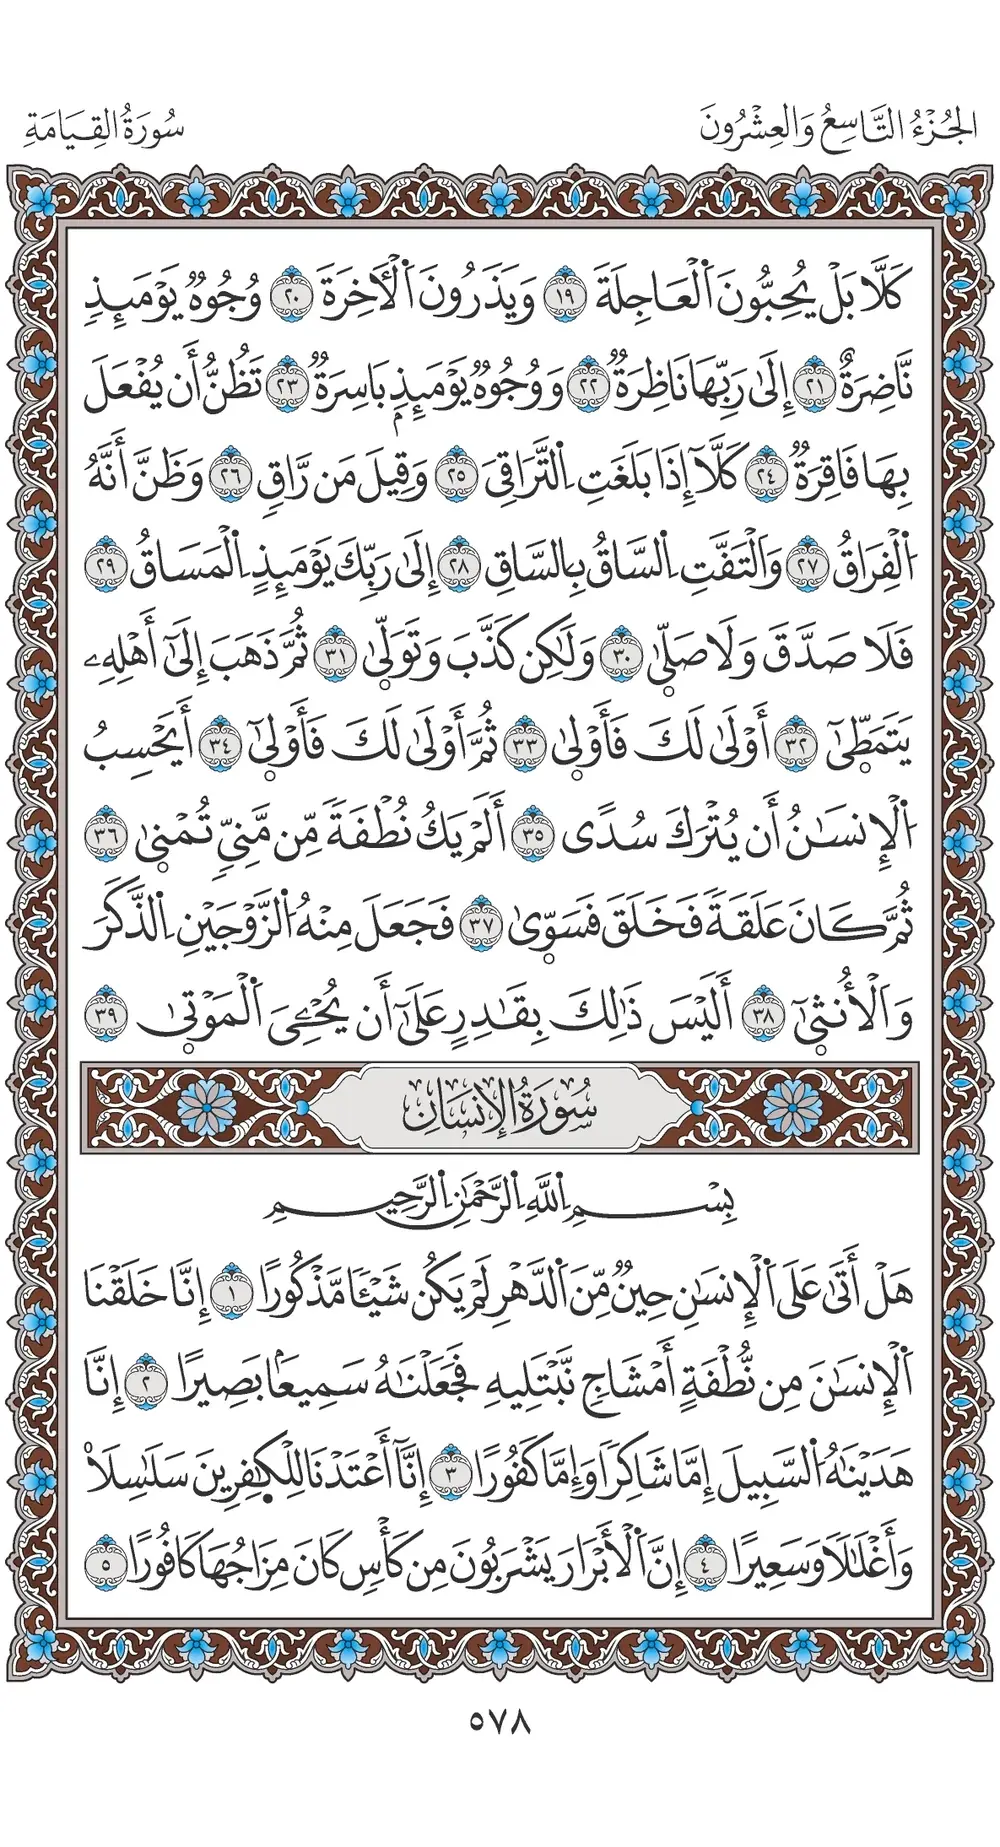 الجُزْءُ التَّاسِعُ وَالعِشْرُونَ
سُورَةُ القِيَامَةِ
كَلَّا بَلْ يُحِبُّونَ اَ۬لْعَاجِلَةَ ١٩ وَيَذَرُونَ اَ۬لْأٓخِرَةَ ٢٠ وُجُوهٞ يَوْمَئِذٖ
نَّاضِرَةٌ ٢١ إِلَىٰ رَبِّهَا نَاظِرَةٞ ٢٢ وَوُجُوهٞ يَوْمَئِذِۢ بَاسِرَةٞ ٢٣ تَظُنُّ أَن يُفْعَلَ
بِهَا فَاقِرَةٞ ٢٤ كَلَّآ إِذَا بَلَغَتِ اِ۬لتَّرَاقِيَ ٢٥ وَقِيلَ مَن رَّاقٖ ٢٦ وَظَنَّ أَنَّهُ
اُ۬لْفِرَاقُ ٢٧ وَالْتَفَّتِ اِ۬لسَّاقُ بِالسَّاقِ ٢٨ إِلَىٰ رَبِّكَ يَوْمَئِذٍ اِ۬لْمَسَاقُ ٢٩
فَلَا صَدَّقَ وَلَا صَلّٜىٰ ٣٠ وَلَٰكِن كَذَّبَ وَتَوَلّٜىٰ ٣١ ثُمَّ ذَهَبَ إِلَىٰٓ أَهْلِهِۦ
يَتَمَطّٜىٰٓ ٣٢ أَوْلَىٰ لَكَ فَأَوْلٜىٰ ٣٣ ثُمَّ أَوْلَىٰ لَكَ فَأَوْلٜىٰٓ ٣٤ أَيَحْسِبُ
اُ۬لْإِنسَٰنُ أَن يُتْرَكَ سُدًى ٣٥ أَلَمْ يَكُ نُطْفَةٗ مِّن مَّنِيّٖ تُمْنٜىٰ ٣٦
ثُمَّ كَانَ عَلَقَةٗ فَخَلَقَ فَسَوّٜىٰ ٣٧ فَجَعَلَ مِنْهُ اُ۬لزَّوْجَيْنِ اِ۬لذَّكَرَ
وَالْأُنثٜىٰٓ ٣٨ أَلَيْسَ ذَٰلِكَ بِقَٰدِرٍ عَلَىٰٓ أَن يُحْـِۧيَ اَ۬لْمَوْتٜىٰ ٣٩
سُورَةُ الإِنسَانِ
بِسْمِ اِ۬للَّهِ اِ۬لرَّحْمَٰنِ اِ۬لرَّحِيمِ
هَلْ أَتَىٰ عَلَى اَ۬لْإِنسَٰنِ حِينٞ مِّنَ اَ۬لدَّهْرِ لَمْ يَكُن شَيْـٔٗا مَّذْكُورًا ١ إِنَّا خَلَقْنَا
اَ۬لْإِنسَٰنَ مِن نُّطْفَةٍ أَمْشَاجٖ نَّبْتَلِيهِ فَجَعَلْنَٰهُ سَمِيعَۢا بَصِيرًا ٢ إِنَّا
هَدَيْنَٰهُ اُ۬لسَّبِيلَ إِمَّا شَاكِرٗا وَإِمَّا كَفُورًا ٣ إِنَّآ أَعْتَدْنَا لِلْكٰٜفِرِينَ سَلَٰسِلَاْ
وَأَغْلَٰلٗا وَسَعِيرًا ٤ إِنَّ اَ۬لْأَبْرَارَ يَشْرَبُونَ مِن كَأْسٖ كَانَ مِزَاجُهَا كَافُورًا ٥
٥٧٨